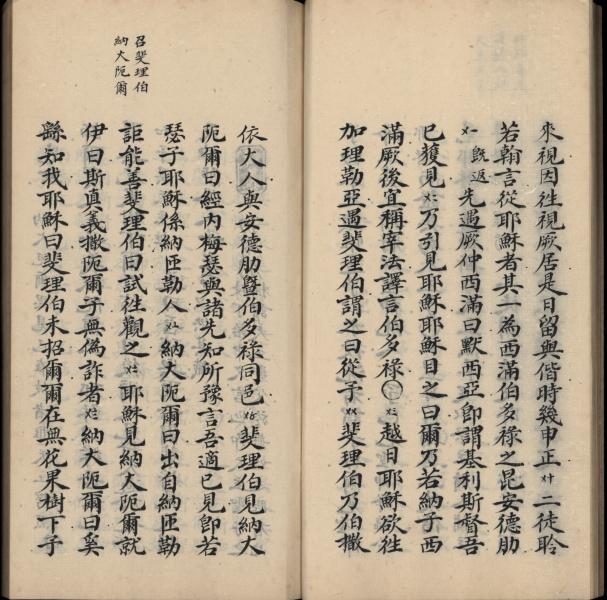 來視因徃視厥居是日留與偕時幾申正〤十二徒聆
若翰言從耶穌者其一為西滿伯多祿之昆安德肋
〤一旣返先遇厥仲西滿曰默西亞卽謂基利斯督吾
已獲見〤二乃引見耶穌耶穌目之曰爾乃若納子西
滿厥後宜稱宰法譯言伯多祿〇〤三越日耶穌欲徃
加理勒亞遇斐理伯謂之曰從予〤〤斐理伯乃伯撒
依大人與安德肋曁伯多祿同邑斐理伯見納大
阨爾曰經內梅瑟與諸先知所豫言吾適已見卽若
瑟子耶穌係納匝勒人納大阨爾曰出自納匝勒
詎能善斐理伯曰試徃觀之耶穌見納大阨爾就
伊曰斯真義撒阨爾子無偽詐者納大阨爾曰奚
繇知我耶穌曰斐理伯未招爾爾在無花果樹下予
召斐理伯
納大阨爾